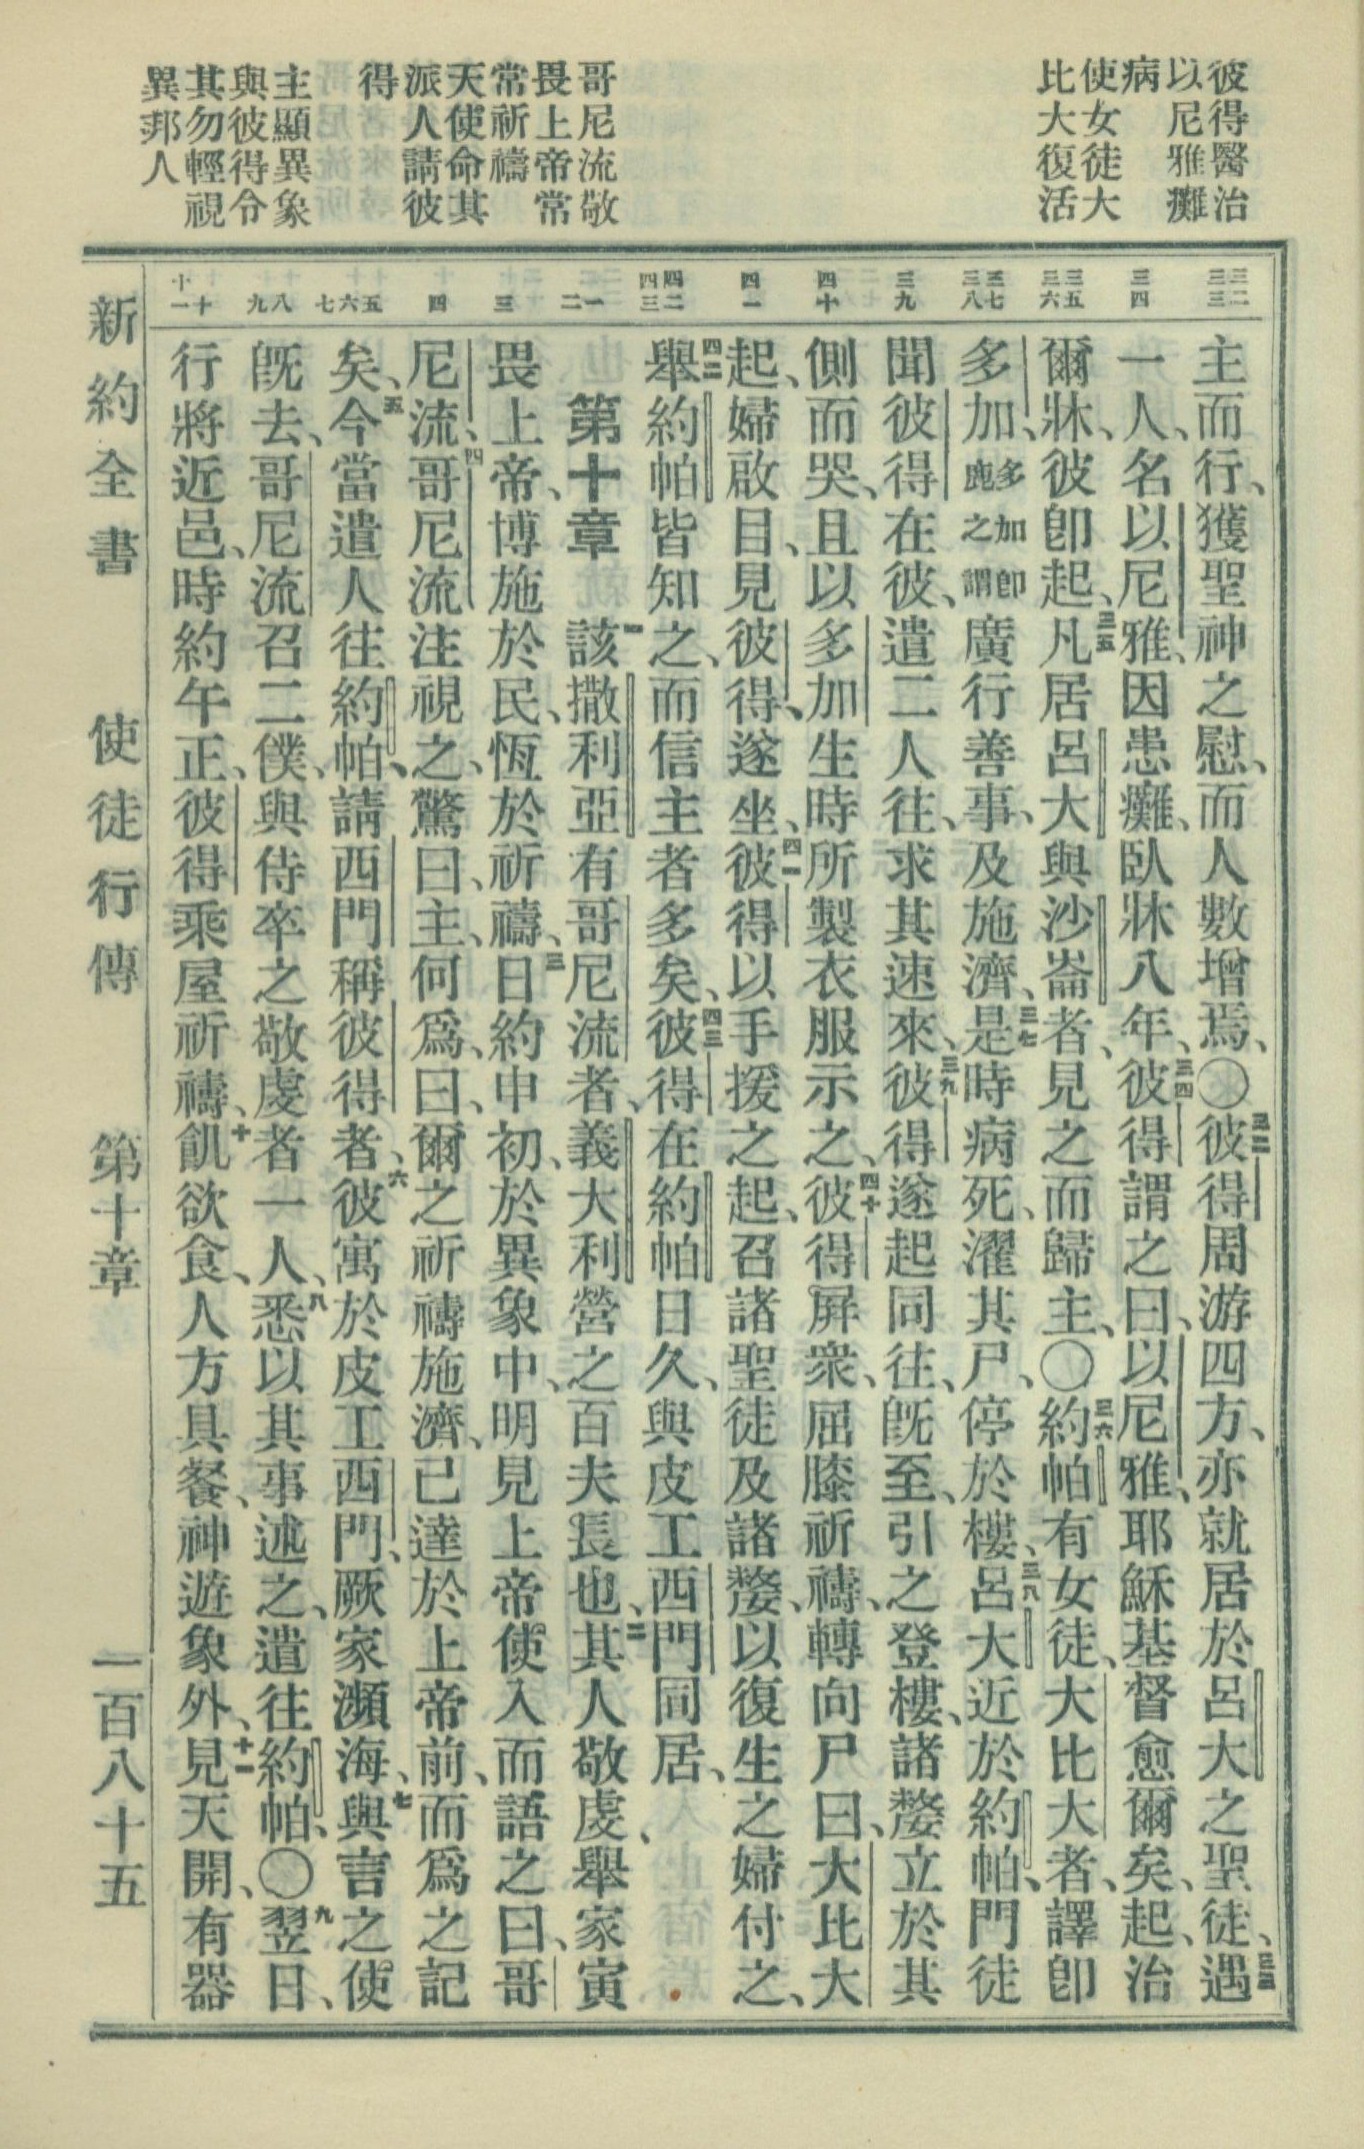 彼得醫治
以尼雅癱
病
使女徒大
比大復活
哥尼流敬
畏上帝常
常祈禱
天使命其
派人請彼
得
主顯異象
與彼得令
其勿輕視
異邦人
三二
三三
三四
三五
三六
三七
三八
三九
四十
四一
四二
四三
一
二
三
四
五
六
七
八
九
十
十一
主而行、獲聖神之慰、而人數增焉、〇三二彼得周游四方、亦就居於呂大之聖徒、三三遇
一人、名以尼雅、因患癱、臥牀八年、三四彼得謂之曰、以尼雅、耶穌基督愈爾矣、起、治
爾牀、彼卽起、三五凡居呂大與沙崙者、見之而歸主、〇三六約帕有女徒、大比大者、譯卽
多加、多加卽鹿之謂廣行善事、及施濟、三七是時病死、濯其尸、停於樓、三八呂大近於約帕、門徒
聞彼得在彼、遣二人往、求其速來、三九彼得遂起同往、旣至、引之登樓、諸嫠立於其
側而哭、且以多加生時所製衣服示之、四十彼得屏衆、屈膝祈禱、轉向尸曰、大比大
起、婦啟目、見彼得、遂坐、四一彼得以手援之起、召諸聖徒及諸嫠、以復生之婦付之、
四二舉約帕皆知之、而信主者多矣、四三彼得在約帕日久、與皮工西門同居、
第十章 一該撒利亞有哥尼流者、義大利營之百夫長也、二其人敬虔、舉家寅
畏上帝、博施於民、恆於祈禱、三日約申初、於異象中、明見上帝使入而語之曰、哥
尼流、四哥尼流注視之、驚曰、主、何爲、曰、爾之祈禱施濟、已達於上帝前、而爲之記
矣、五今當遣人往約帕、請西門稱彼得者、六彼寓於皮工西門、厥家瀕海、七與言之使
旣去、哥尼流召二僕、與侍卒之敬虔者一人、八悉以其事述之、遣往約帕、〇九翌日、
行將近邑、時約午正、彼得乘屋祈禱、十飢欲食、人方具餐、神遊象外、十一見天開、有器
新約全書 使徒行傳 第十章 一百八十五